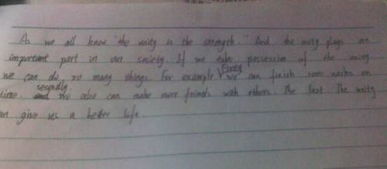 As we all know "the unity is the strength." And the unity plays an
important part in our society. If we take possession of the unity
we can do so many things. For example, Firstly we can finish some works on
time. secondly we also can make more friends with others. The last The unity
can give us a better life.